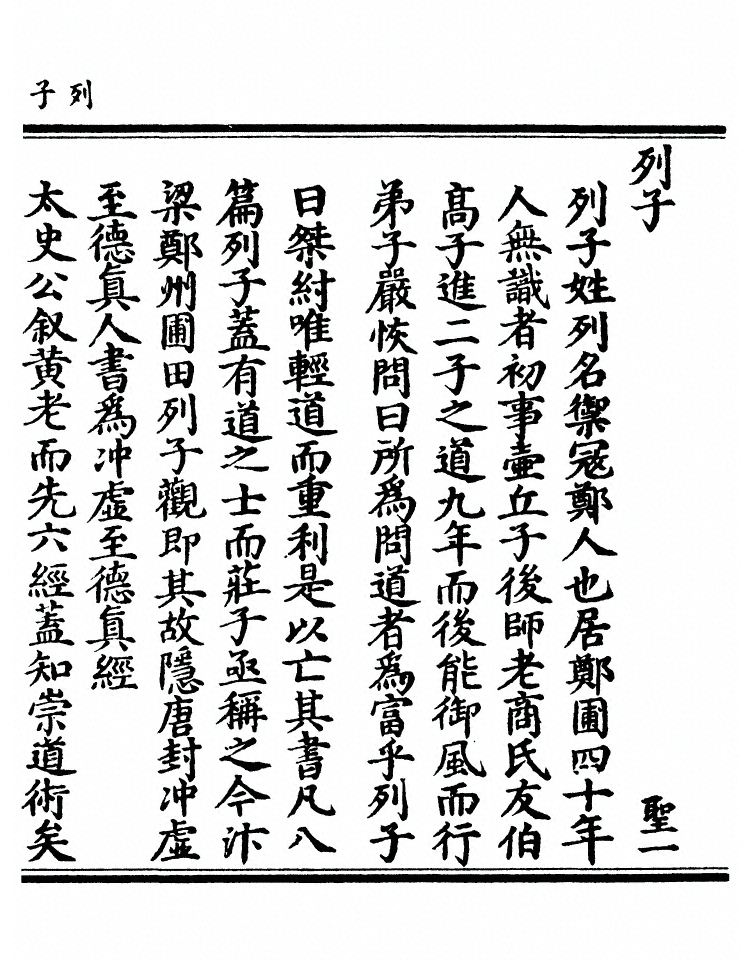 列子
列子　聖一
列子姓列名禦冦鄭人也居鄭圃四十年
人無識者初事壷丘子後師老商氏友伯
髙子進二子之道九年而後能御風而行
弟子嚴恢問曰所爲問道者爲富乎列子
曰桀紂唯輕道而重利是以亡其書凡八
篇列子蓋有道之士而莊子亟稱之今汴
梁鄭州圃田列子觀即其故隱唐封冲虛
至德真人書爲冲虛至德真經
太史公叙黄老而先六經蓋知崇道術矣